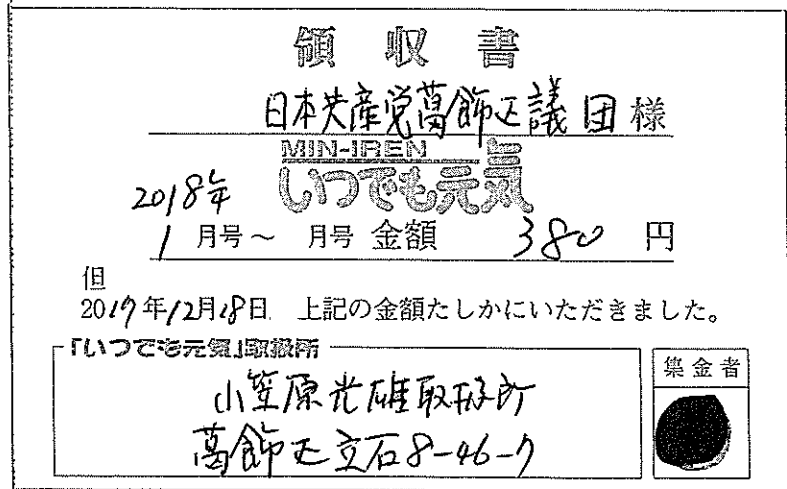 領収書
日本共産党葛飾区議団様
MIN-IREN
いつでも元気
2018年
1月号～ 月号 金額 380円
但
2017年12月18日 上記の金額たしかにいただきました。
「いつでも元気」取扱所
集金者
小笠原光雄取扱所
葛飾区立石8-46-7